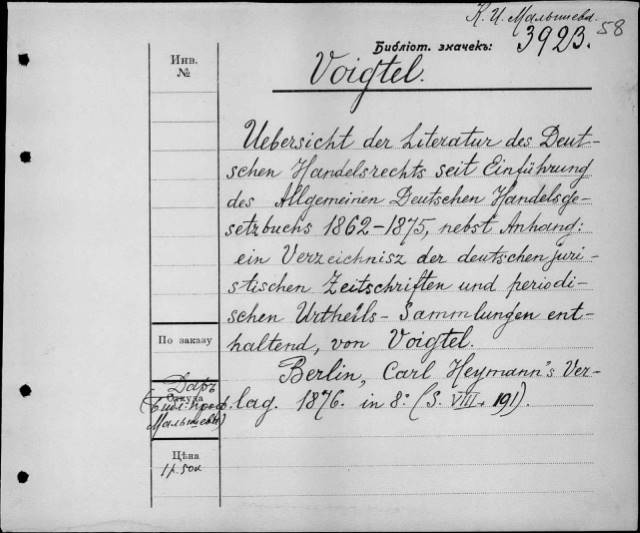 К. И. Малышева. 58
Библіот. значекъ: 3923.
Инв.
№
Voigtel.
Uebersicht der Literatur des Deut-
schen Handelsrechts seit Einführung
des Allgemeinen Deutschen Handelsge-
setzbuchs 1862-1875, nebst Anhang:
ein Verzeichnisz der deutschen juri-
stischen Zeitschriften und periodi-
schen Urtheils-Sammlungen ent-
haltend, von Voigtel.
Berlin, Carl Heymann's Ver-
lag. 1876. in 8º (S. VIII + 191).
По заказу
Даръ
Откуда
(Библ. проф.
Малышева)
Цѣна
1 р. 50 к